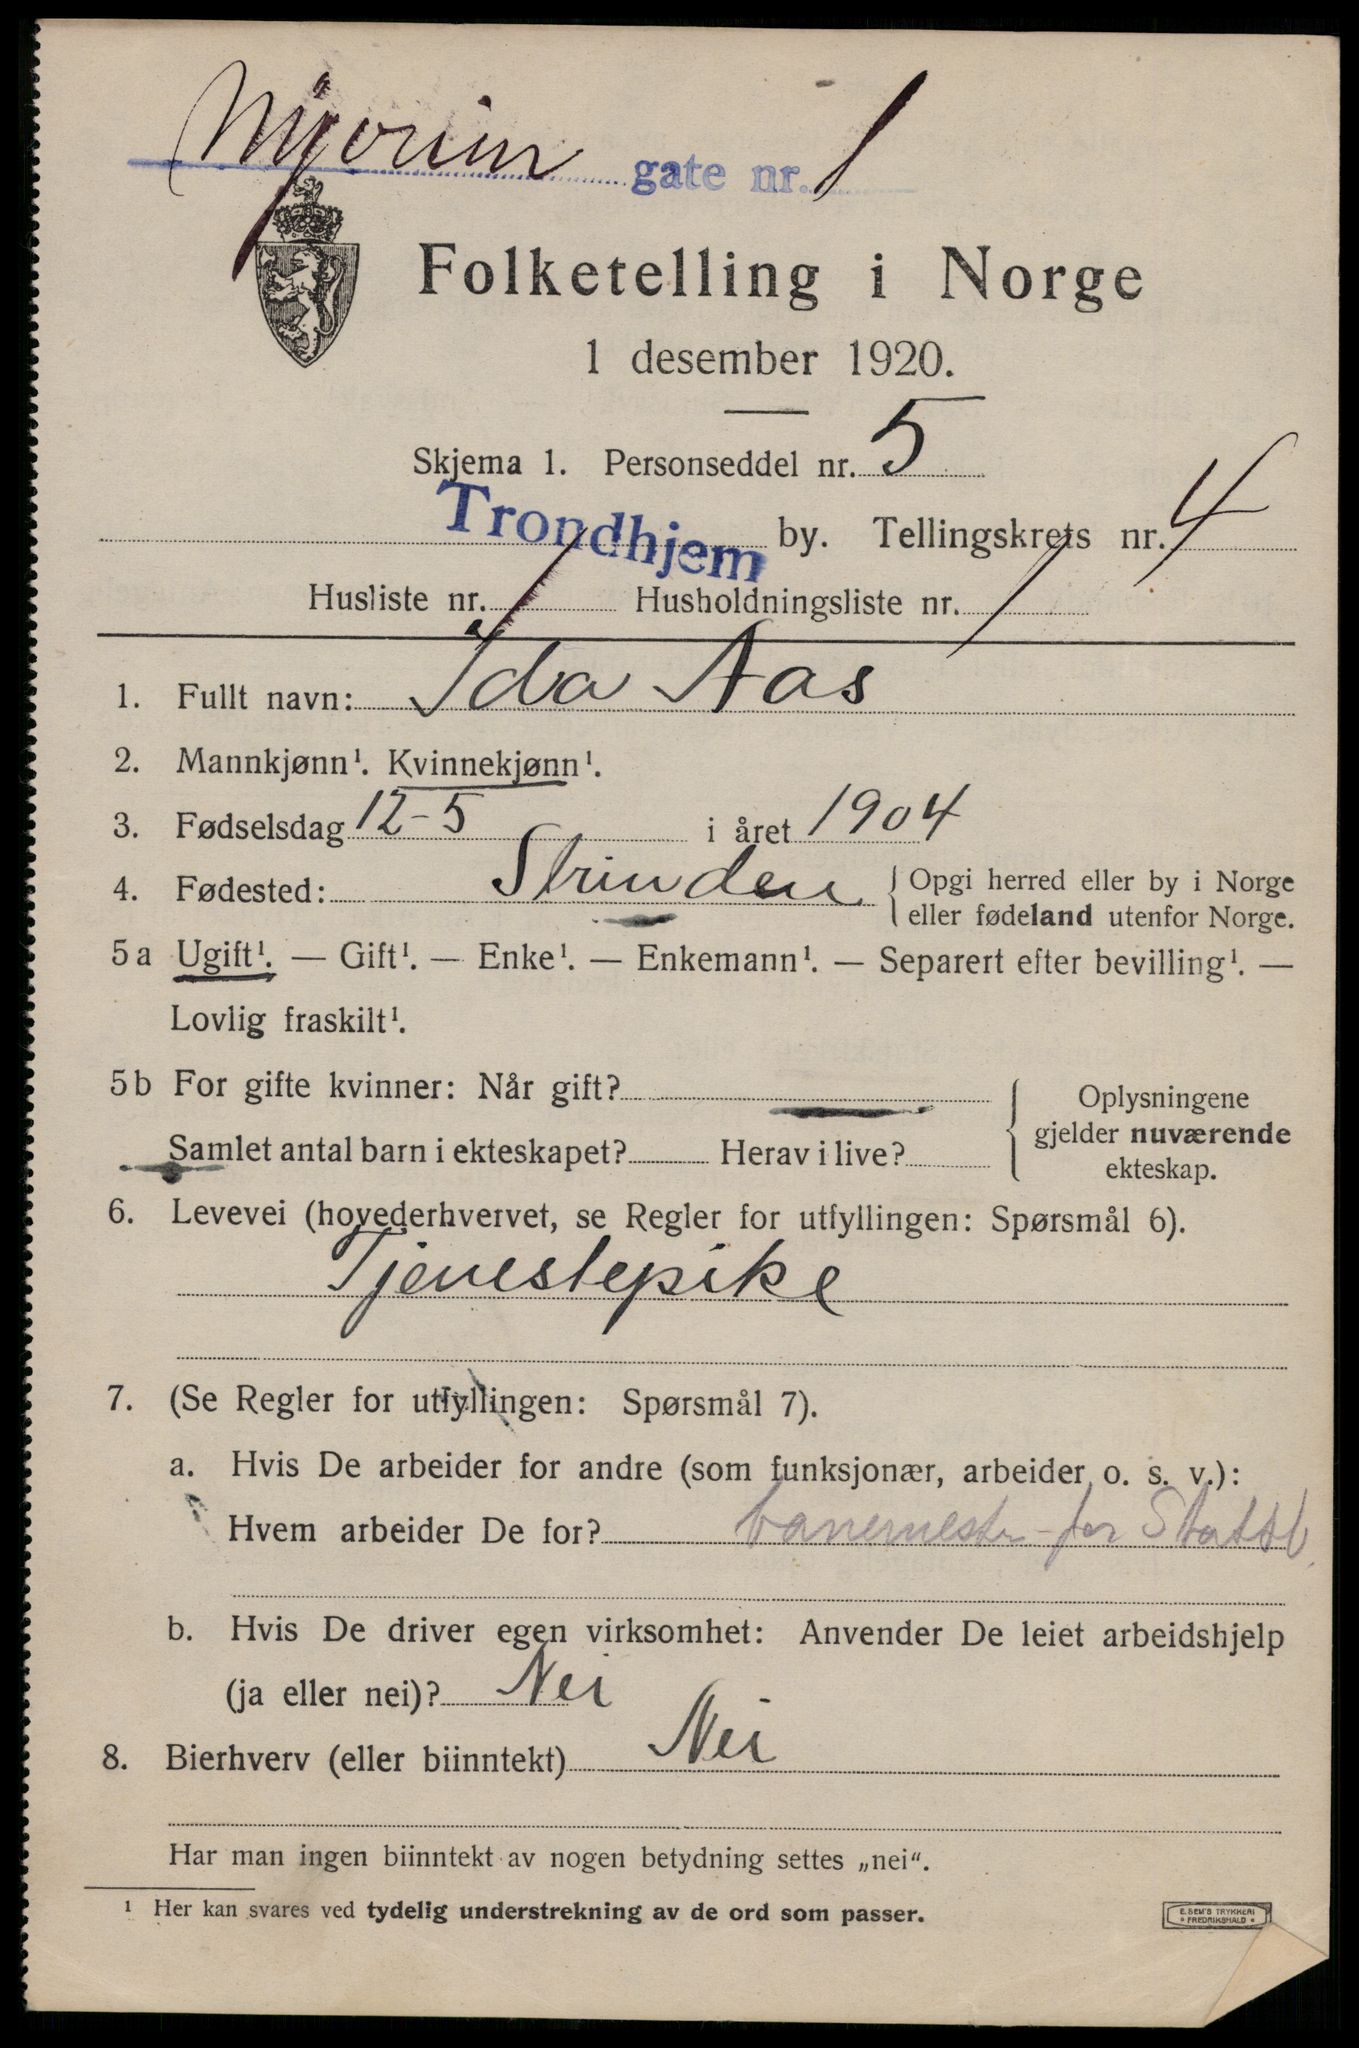 gate nr. 1
Folketelling i Norge
1 desember 1920.
Skjema 1. Personseddel nr. 5
Trondhjem by. Tellingskrets nr. 4
Husliste nr. 1 Husholdningsliste nr. 1
1. Fullt navn: Ida Aas
2. Mannkjønn¹. Kvinnekjønn¹.
3. Fødselsdag 12-5 i året 1904
4. Fødested: Strinden { Opgi herred eller by i Norge
eller fødeland utenfor Norge.
5a Ugift¹. — Gift¹. — Enke¹. — Enkemann¹. — Separert efter bevilling¹. —
Lovlig fraskilt¹.
5b For gifte kvinner: Når gift?
Samlet antal barn i ekteskapet? Herav i live?
Oplysningene
gjelder nuværende
ekteskap.
6. Levevei (hovederhvervet, se Regler for utfyllingen: Spørsmål 6).
Tjenestepike
7. (Se Regler for utfyllingen: Spørsmål 7).
a. Hvis De arbeider for andre (som funksjonær, arbeider o. s. v.):
Hvem arbeider De for? banemester for Statsb.
b. Hvis De driver egen virksomhet: Anvender De leiet arbeidshjelp
(ja eller nei)? Nei
8. Bierhverv (eller biinntekt) Nei
Har man ingen biinntekt av nogen betydning settes „nei".
¹ Her kan svares ved tydelig understrekning av de ord som passer.
E. SEM'S TRYKKERI
* FREDRIKSHALD *